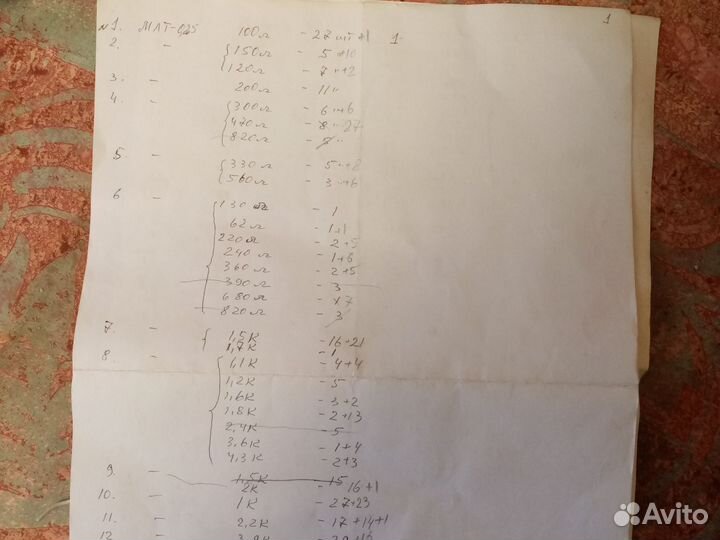 1
№1. МЛТ-0,25 100 л - 27 шт +1 1
2. - 150 л - 5 "+10
120 л - 7 "+2
3. - 200 л - 11 "
4. - 300 л - 6 "+6
470 л - 8 " 27
820 л - "
5. - 330 л - 5 "+8
560 л - 3 "+6
6 - 130 - 1
62 л - 1+1
220 л - 2+5
240 л - 1+6
360 л - 2+5
390 л - 3
680 л - 7
820 л - 3
7. - 1,5 К - 16+21
1,7 К - 1
8. - 1,1 К - 4+4
1,2 К - 5
1,6 К - 3+2
1,8 К - 2+13
2,4 К - 5
3,6 К - 1+4
4,3 К - 2+3
9. - 1,5 К - 15
10. - 2 К - 16+1
1 К - 27+23
11. - 2,2 К - 17+14+1
12
Avito